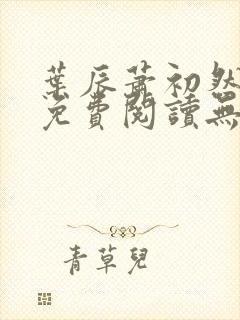 葉辰蕭初然
免費閱讀無
青草兒